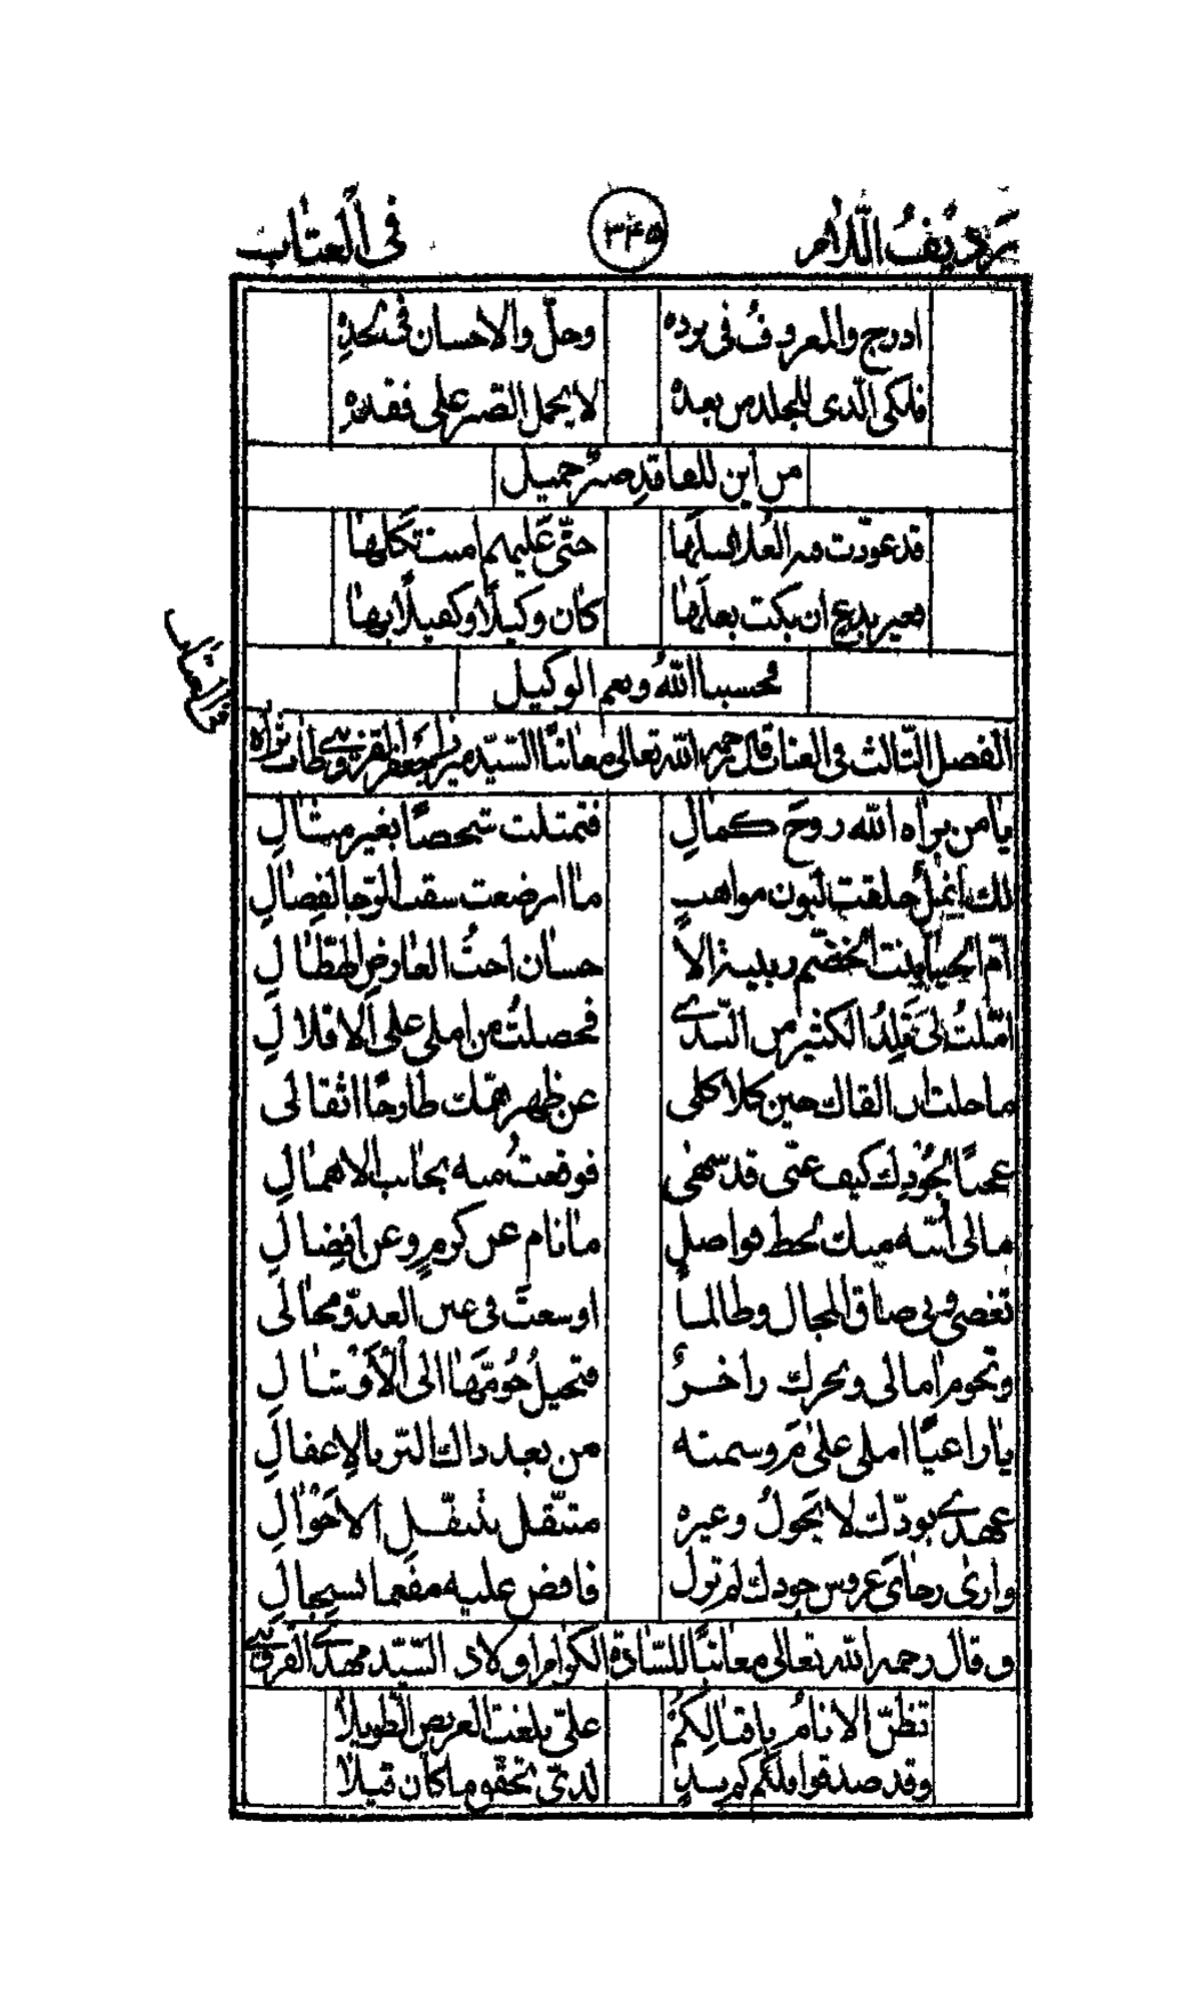 رديف اللام ٣٤٥ في العتاب
ادرج والمعروف في برده وحل والاحسان في لحده
فلكي الذي للمجد من بعده لا يحمل الصبر على فقده
من اين للفاقد صبر جميل
قد عودت العلا حتى عليهم
بدمع ان بكت بعلها كان وكيلا وكفيلا بها
فحسبنا الله ونعم الوكيل
في العتاب
الفصل الثالث في العتاب قال رحمه الله تعالى معاتبا السيد ميرزا جعفر القزويني طاب ثراه
يا من براه الله روح كمال فتمثلت شخصا بغير مثال
لك انمل خلقت لبون مواهب ما ارضعت سقب الرجا لفصال
ام الحيا بنت الخضم ربيبة الا حسان اخت العارض الهطال
املت لي تلد الكثير من الندى فحصلت من املي على الاقلال
ما خلت ان القاك حين كلا كلي عن ظهر همك طارحا اثقالي
عجبا لجودك كيف عني قد سهى فوقعت منه بجانب الاهمال
مالي انبه منك لحظ فواضل ما نام عن كرم وعن افضال
تغضي وبي ضاق المجال وطالما اوسعت في عين العدو مجالي
وتحوم امالي وبحرك زاخر فتحيل حومها الى الاوشال
يا راعيا املي على مر وسمته من بعد ذاك البر بالاغفال
عهدي بودك لا يحول وغيره متنقل بتنقل الاحوال
وارى رجاي غروس جودك لم تزل فافض عليه مفعما بسجال
وقال رحمه الله تعالى معاتبا للسادة الكرام اولاد السيد مهدي القزويني
تظن الانام باقبالكم علي بلغت العريض الطويلا
وقد صدقوا فلكم كم يد لدي تحقق ما كان قيلا